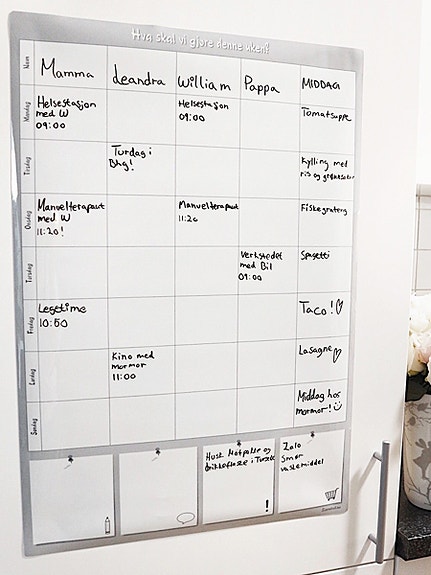 Hva skal vi gjøre denne uken?
Navn
Mamma
Leandra
William
Pappa
MIDDAG
Mandag
Helsestasjon
med W
09:00
Helsestasjon
09:00
Tomatsuppe
Tirsdag
Turdag i
Bhg!
Kylling med
ris og grønnsaker
Onsdag
Manuellterapeut
med W
11:20!
Manuellterapeut
11:20
Fiskegrateng
Torsdag
Verkstedet
med Bil
09:00
Spagetti
Fredag
Legetime
10:50
Taco!
Lørdag
Kino med
mormor
11:00
Lasagne
Søndag
Middag hos
mormor!
Husk Matpakke og
drikkeflaske i
!
Zalo
Smør
vaskemiddel